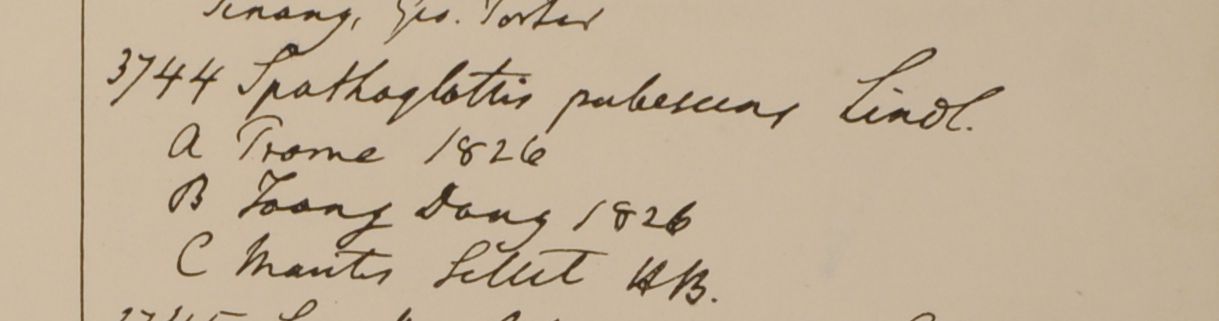 Penang, Geo. Porter
3744 Spathoglottis pubescens Lindl.
A Prome 1826
B Toong Dong 1826
C Montes Sillet HB.
3745